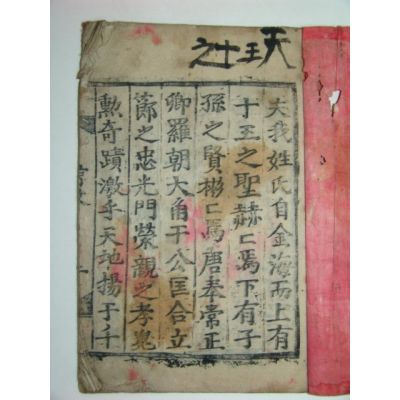 天王十之
夫我姓氏自金海而上有
十王之聖赫〻焉下有子
孫之賢彬〻焉唐奉常正
卿羅朝大角干公匡合立
節之忠光門榮親之孝
勲奇蹟激乎天地揚于千